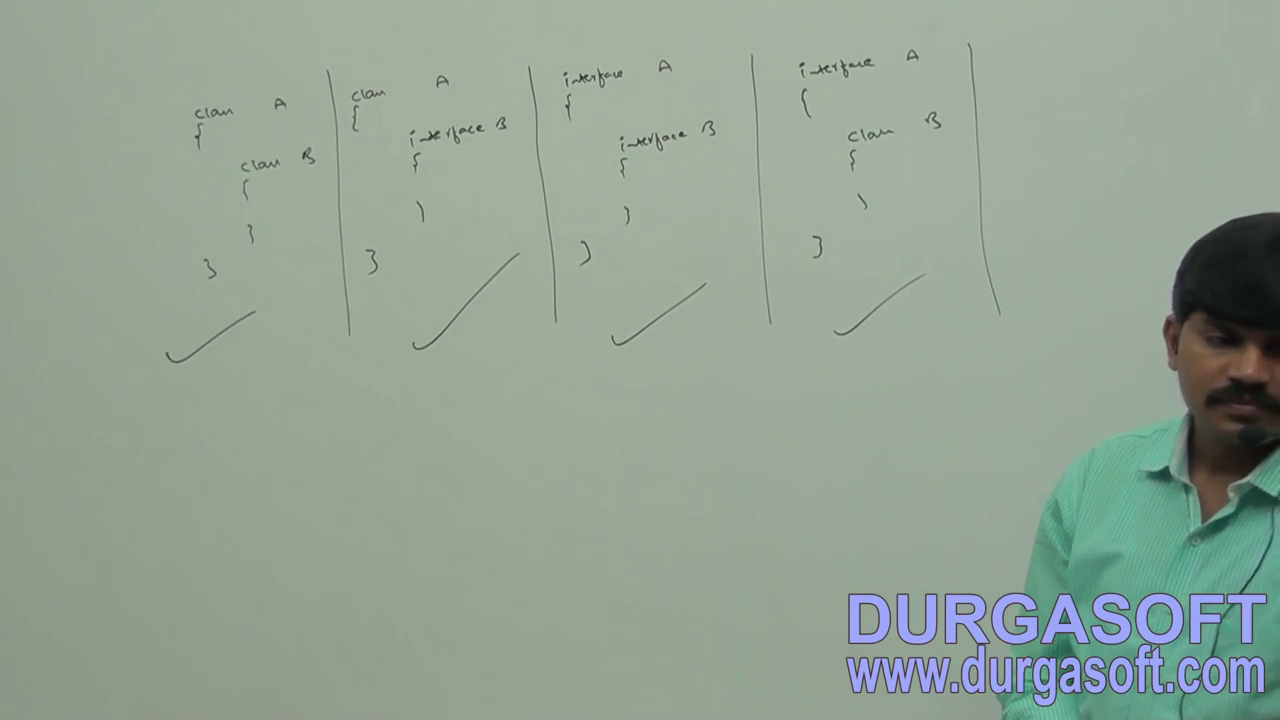 class A
{
class B
{
}
}
class A
{
interface B
{
}
}
interface A
{
interface B
{
}
}
interface A
{
class B
{
}
}
DURGASOFT
www.durgasoft.com